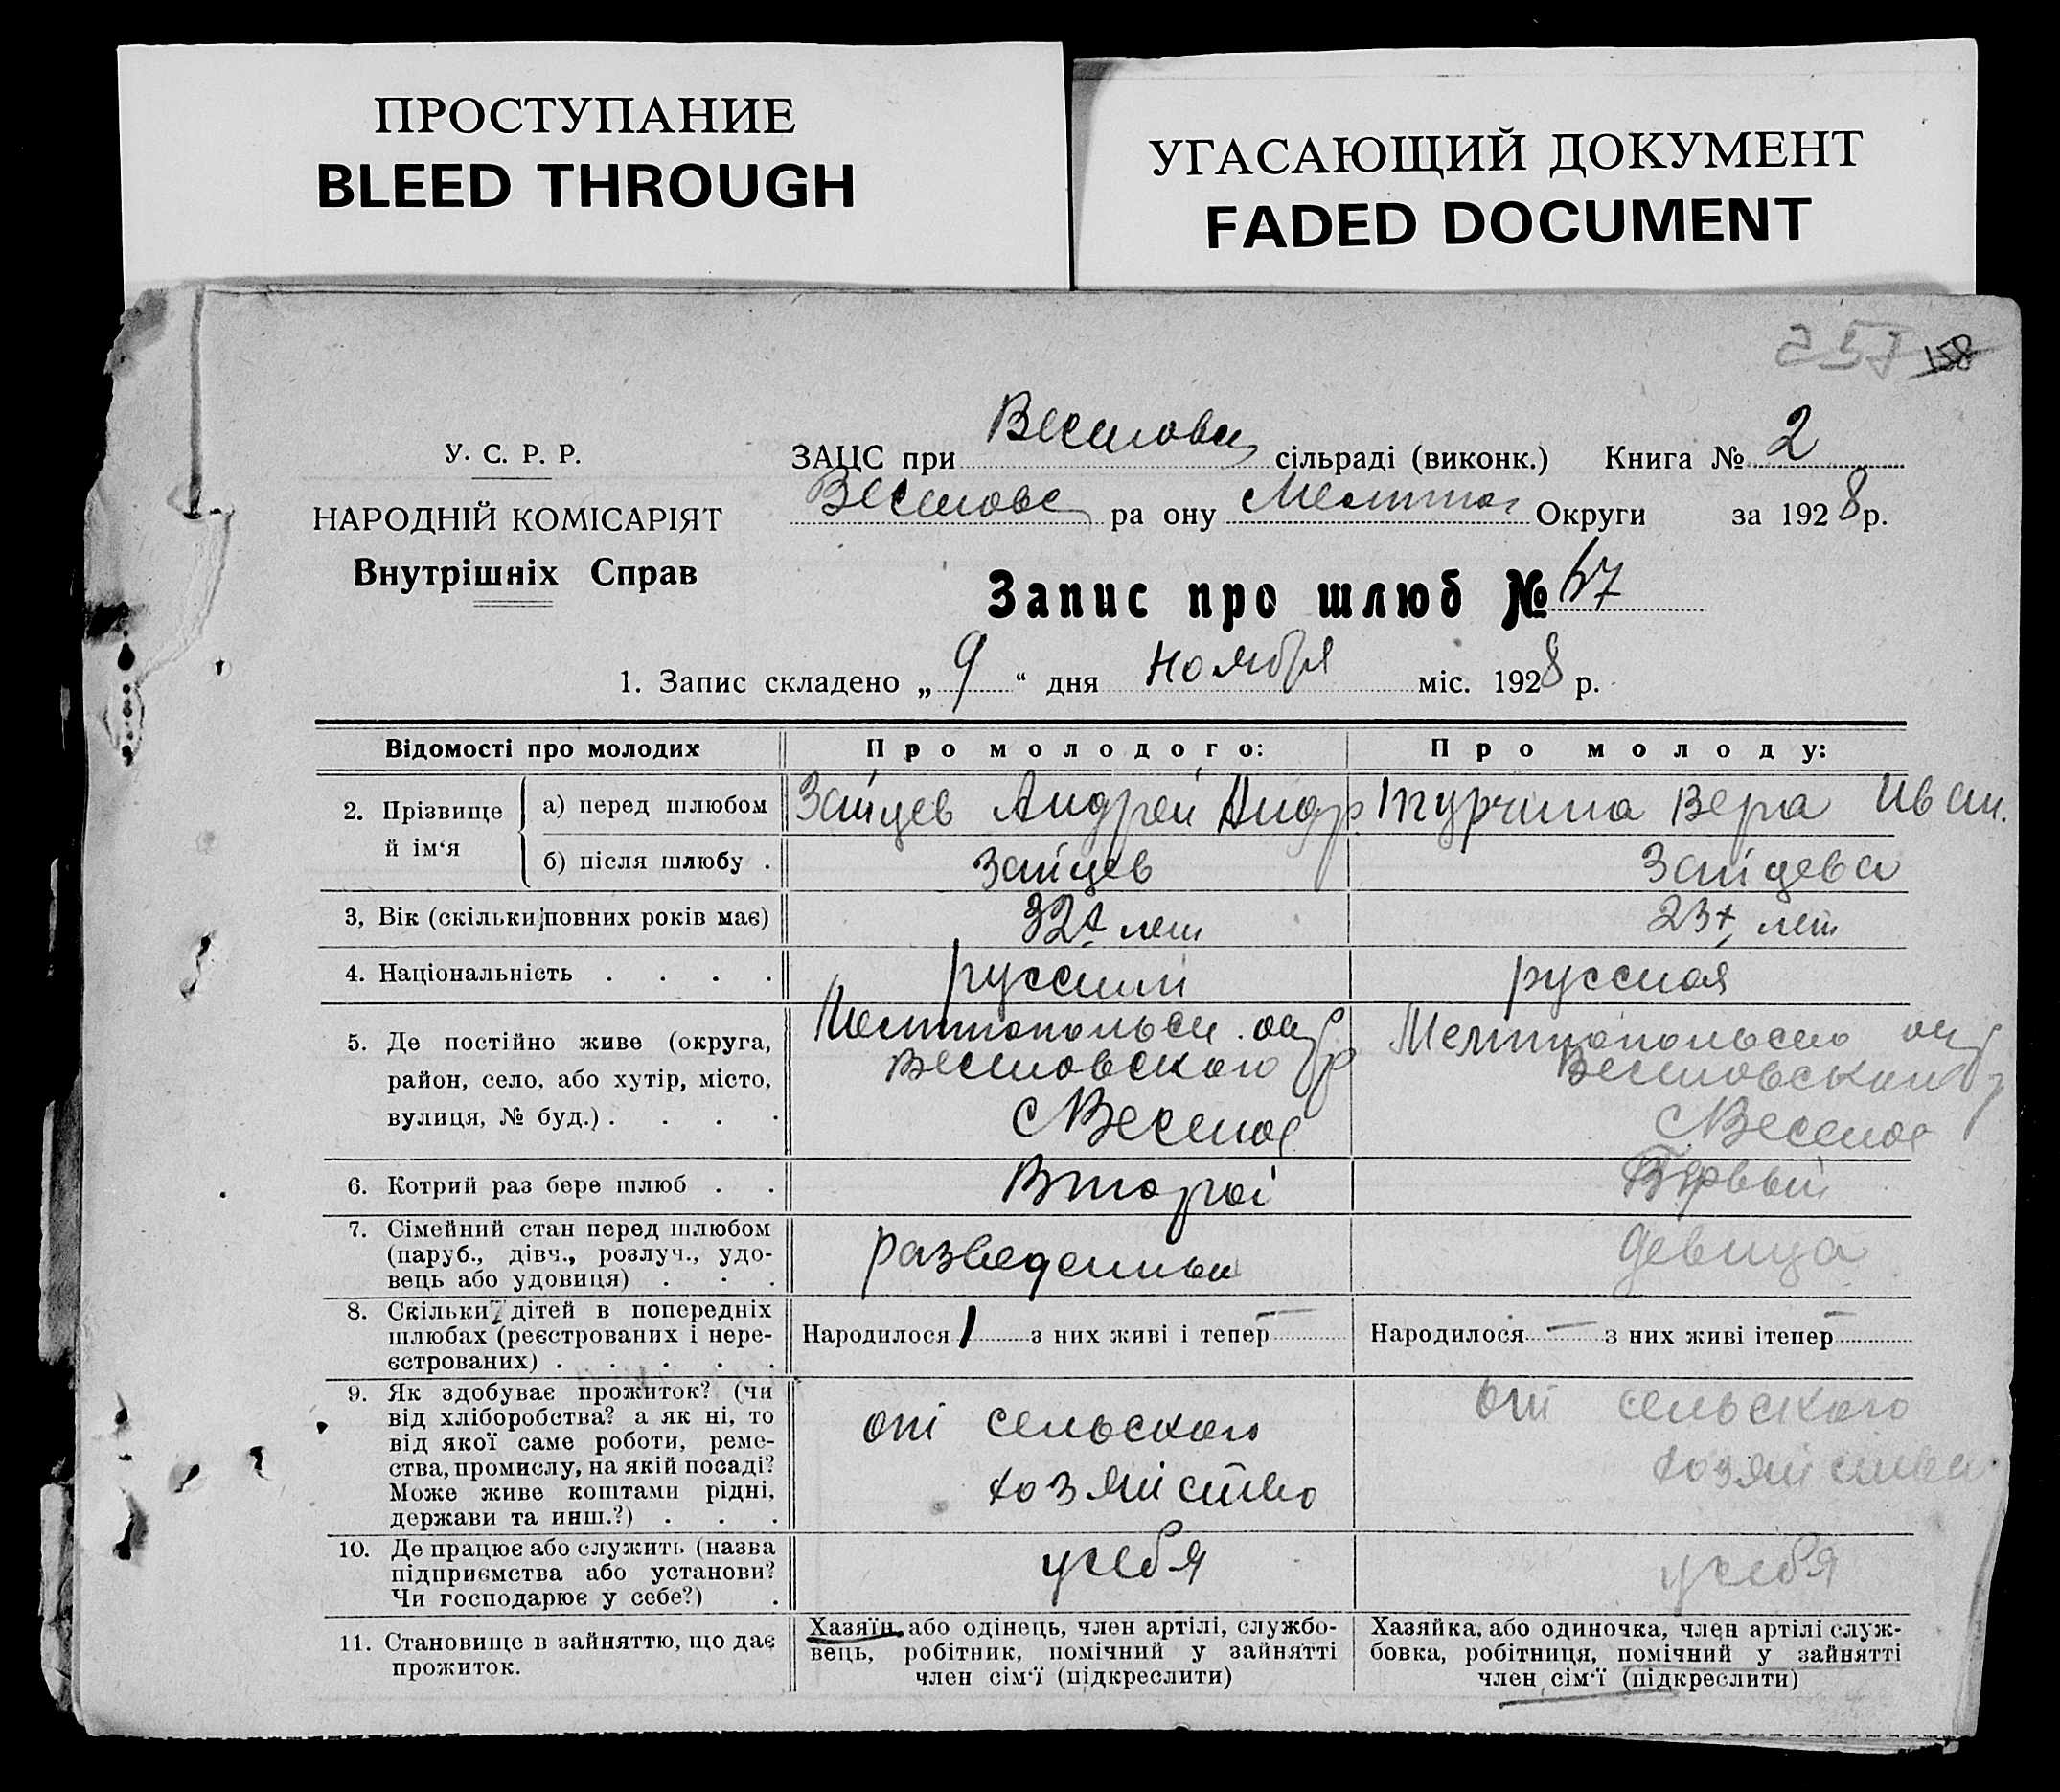 ПРОСТУПАНИЕ
BLEED THROUGH
УГАСАЮЩИЙ ДОКУМЕНТ
FADED DOCUMENT
158
У. С. Р. Р.
НАРОДНІЙ КОМІСАРІЯТ
Внутрішніх Справ
ЗАЦС при сільраді (виконк.) Книга № 2
ра ону Округи за 1928 р.
Запис про шлюб № 67
1. Запис складено „ 9 “ дня ноября міс. 1928 р.
Відомості про молодих Про молодого: Про молоду:
2. Прізвище й ім‘я
а) перед шлюбом Зайцев Андрей Андр. Турчина Вера Иван.
б) після шлюбу . Зайцев Зайцева
3, Вік (скільки повних років має) 32 лет 23 лет
4. Національність . . . . русский русская
5. Де постійно живе (округа, Мелитопольск. окр Мелитопольско окр
район, село, або хутір, місто, Веселовского р Веселовского р
вулиця, № буд.) . . . . с Веселое с Веселое
6. Котрий раз бере шлюб . . Второй Первый
7. Сімейний стан перед шлюбом
(паруб., дівч., розлуч., удо- разведенный девица
вець або удовиця) . . .
8. Скільки дітей в попередніх
шлюбах (реєстрованих і нере- Народилося 1 з них живі і тепер — Народилося — з них живі ітепер —
єстрованих) . . . . .
9. Як здобуває прожиток? (чи
від хліборобства? а як ні, то от сельского от сельского
від якої саме роботи, реме-
ства, промислу, на якій посаді? хозяйства
Може живе коштами рідні, хозяйство
держави та инш.?) . . .
10. Де працює або служить (назва
підприємства або установи? у себя у себя
Чи господарює у себе?) .
11. Становище в зайняттю, що дає
прожиток.
Хазяїн, або одінець, член артілі, службо-
вець, робітник, помічний у зайнятті
член сім‘ї (підкреслити)
Хазяйка, або одиночка, член артілі служ-
бовка, робітниця, помічний у зайнятті
член сім‘ї (підкреслити)